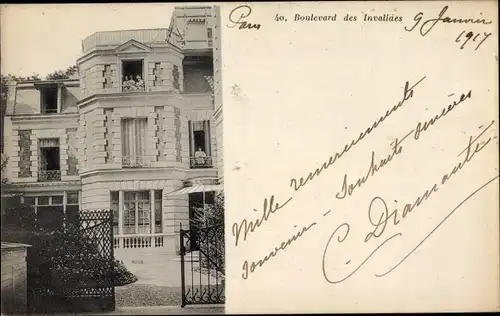 40, Boulevard des Invalides
Paris 9 Janvier
1917
Mille remerciements
Souvenir - Souhaits sincères
C. Diamante